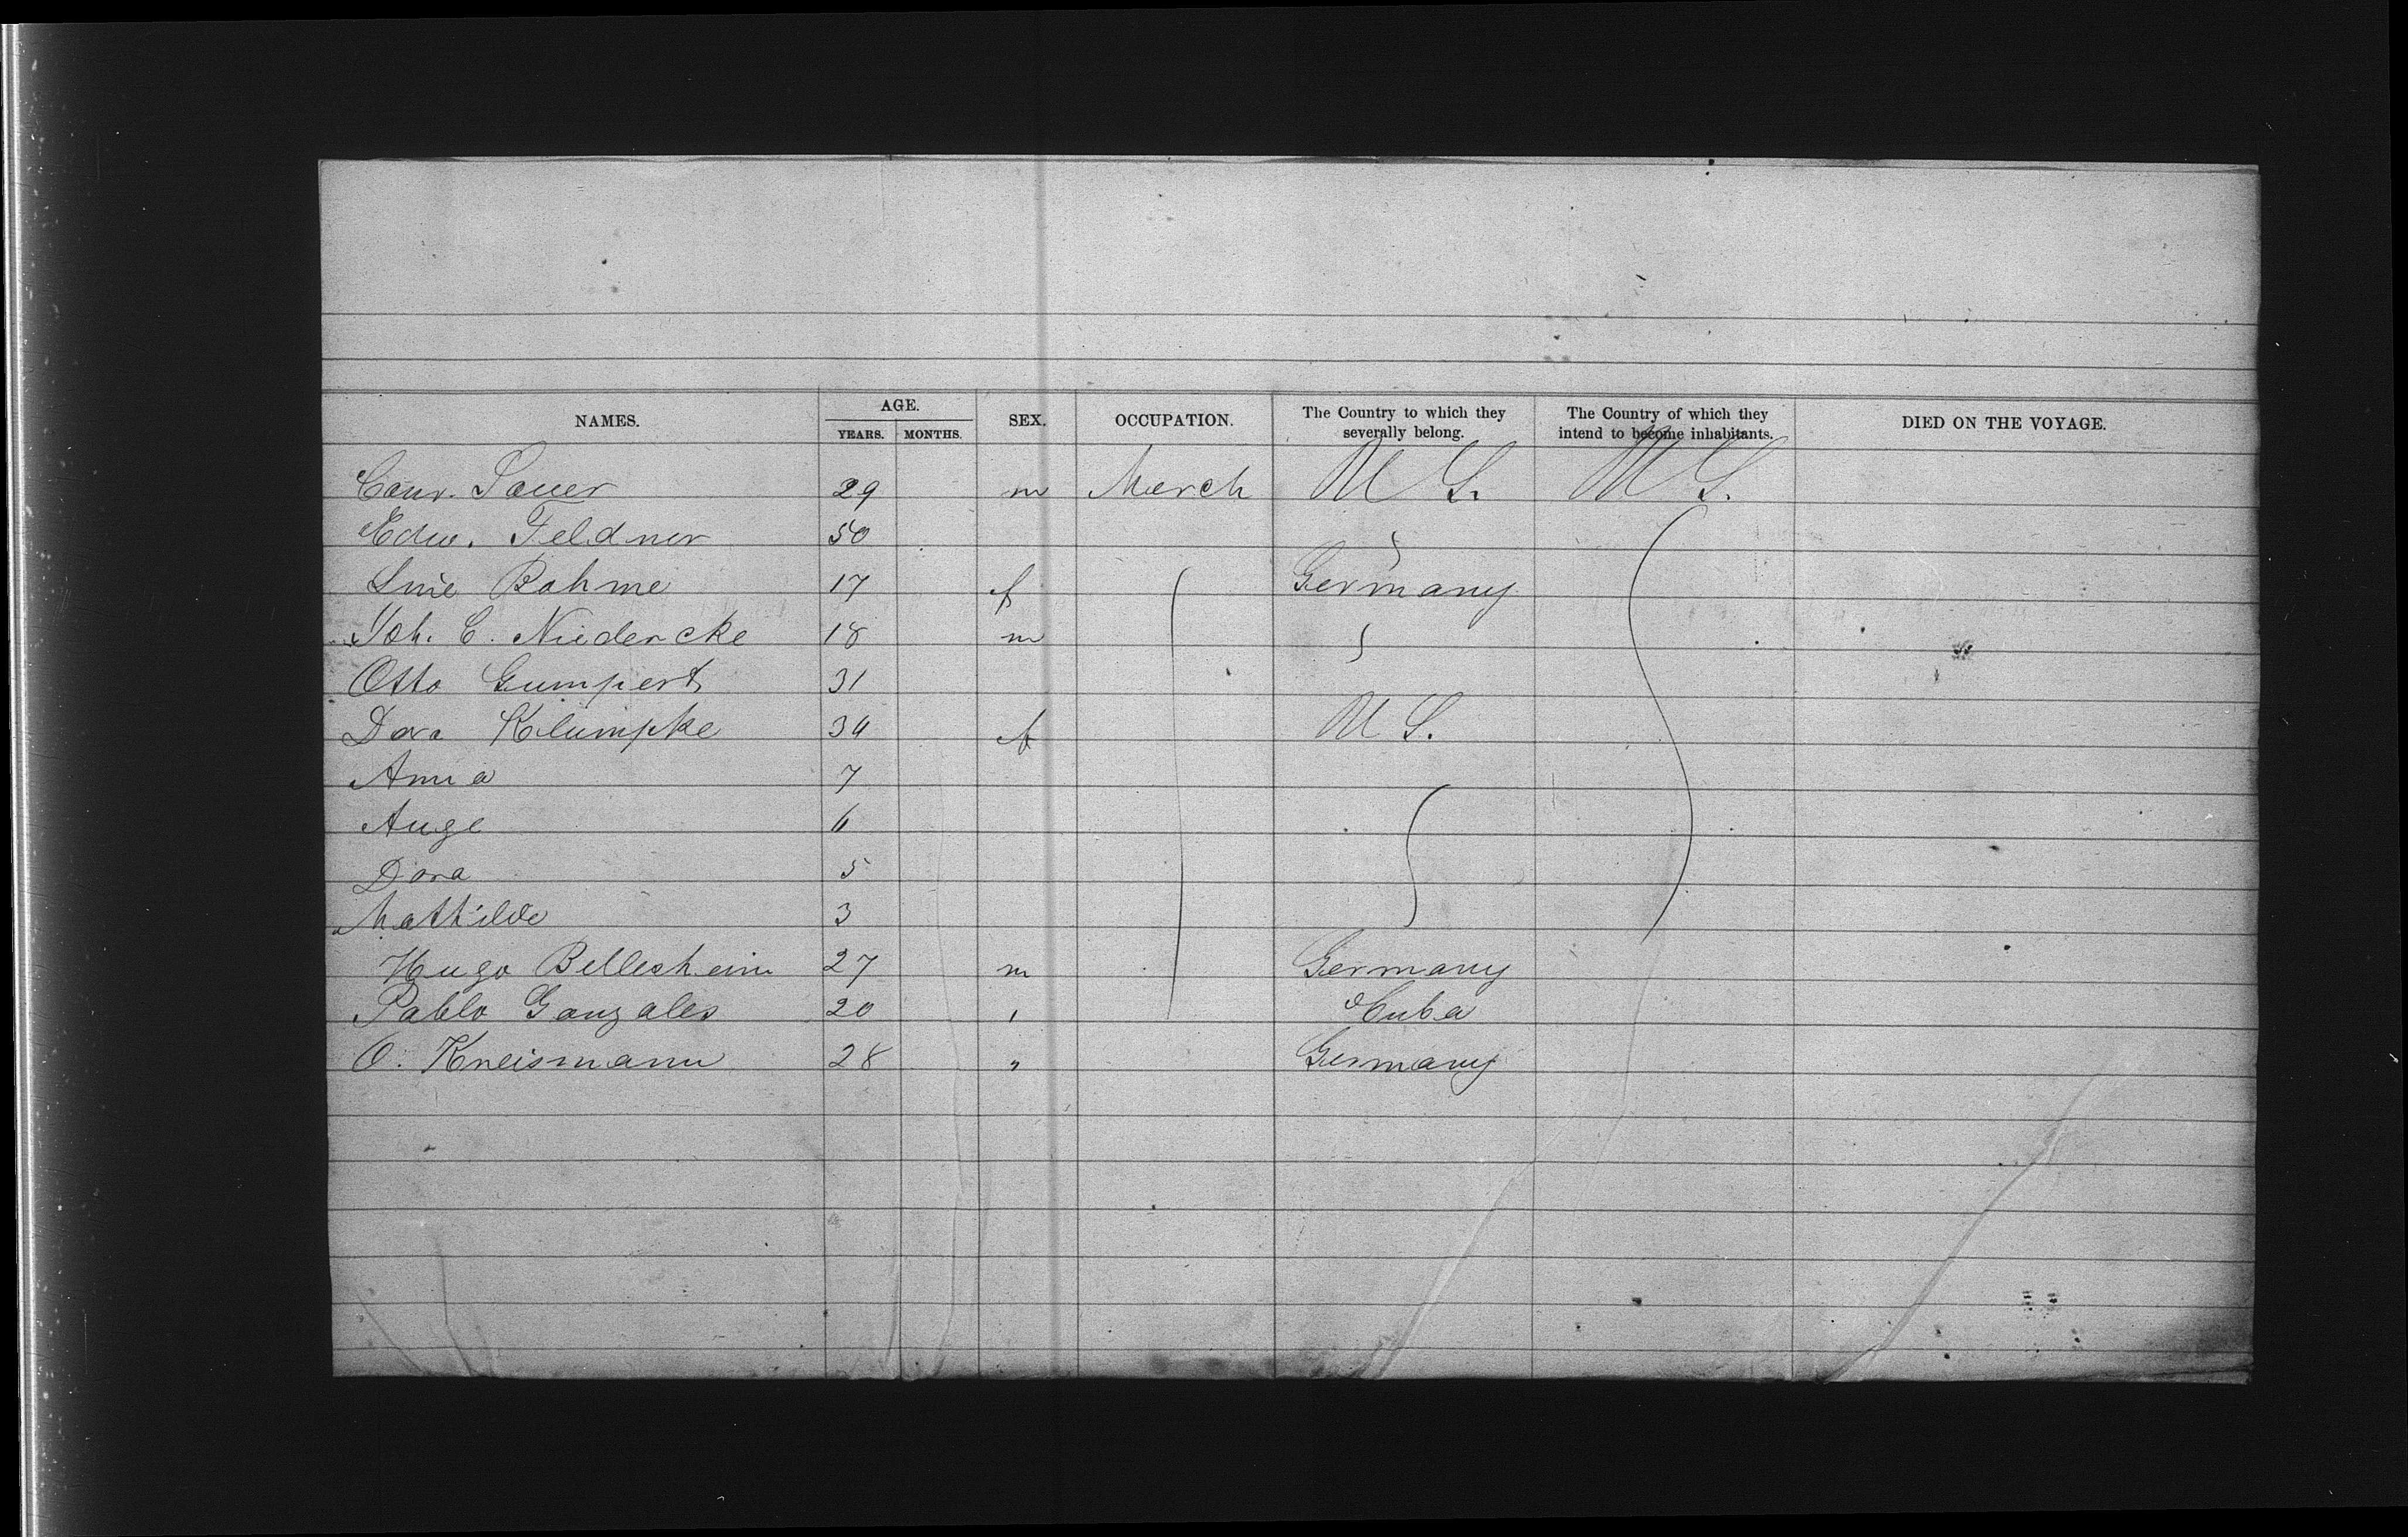 NAMES. AGE. YEARS. MONTHS. SEX. OCCUPATION. The Country to which they severally belong. The Country of which they intend to become inhabitants. DIED ON THE VOYAGE.
Conr. Sauer 29 m Merch U S. U S.
Edw. Feldner 50
Line Bohme 17 f Germany
Joh. C. Niedercke 18 m
Otto Gumpert 31
Dora Klumpke 34 f U S.
Anna 7
Auge 6
Dora 5
Mathilde 3
Hugo Bellesheim 27 m Germany
Pablo Gonzales 20 " Cuba
O. Kneismann 28 " Germany